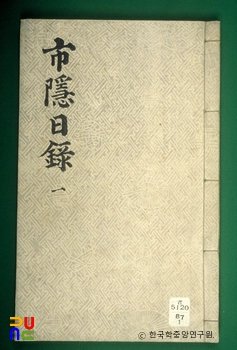 市隱日錄
一
5120
87
1
© 한국학중앙연구원